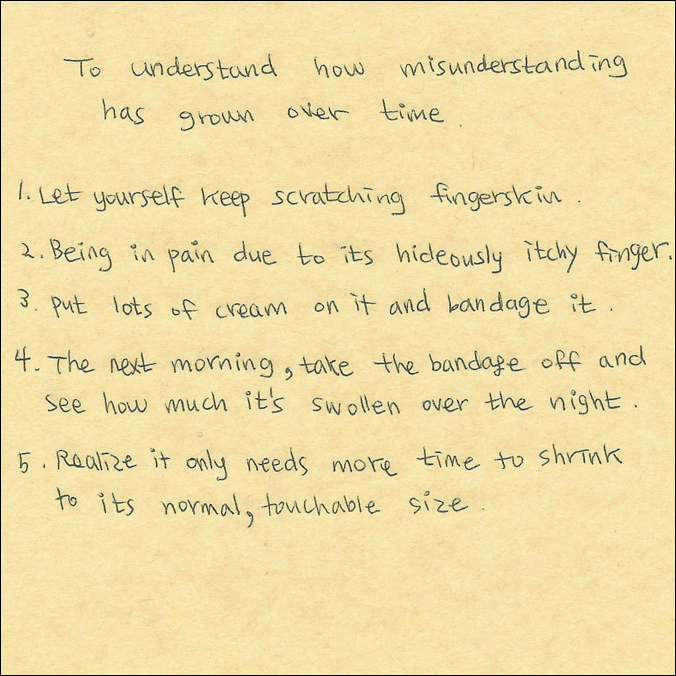 To understand how misunderstanding
has grown over time.
1. Let yourself keep scratching fingerskin.
2. Being in pain due to its hideously itchy finger.
3. put lots of cream on it and bandage it.
4. The next morning, take the bandage off and
see how much it's swollen over the night.
5. Realize it only needs more time to shrink
to its normal, touchable size.